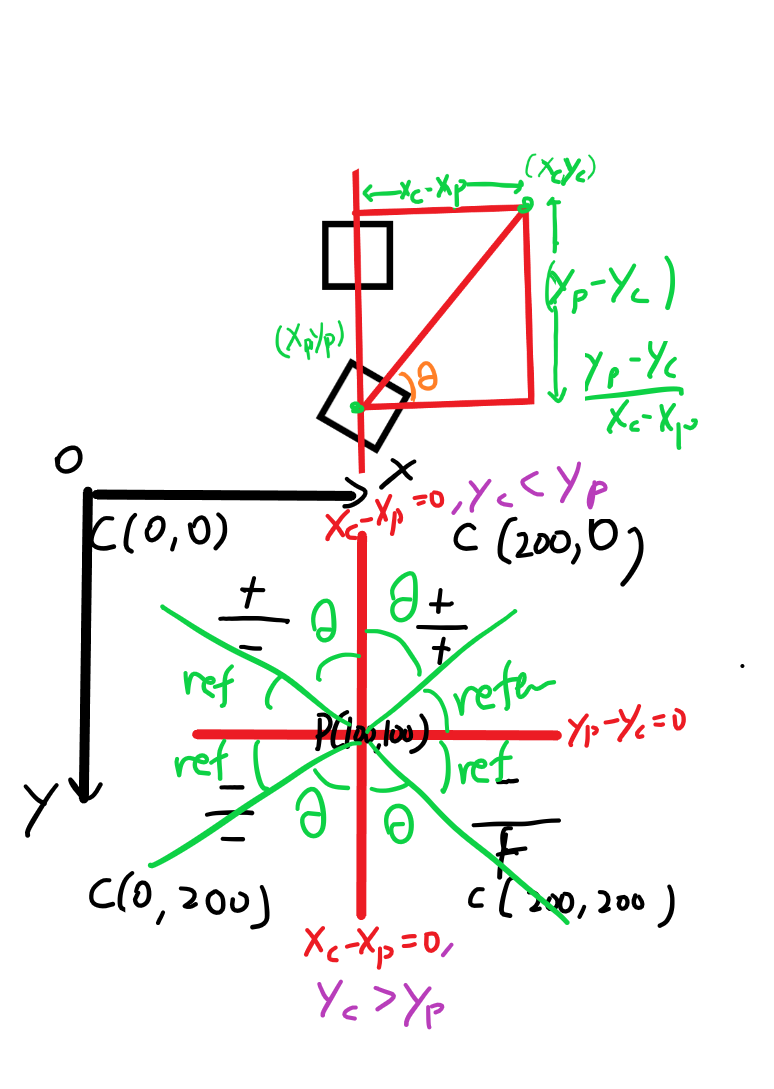 (Xc Yc)
Xc-Xp
(Yp-Yc)
(Xp Yp)
θ
Yp-Yc
Xc-Xp
O
X
Xc-Xp=0, Yc<Yp
C(0,0)
C(200,0)
+
-
θ
θ
+
+
ref
P(100,100)
Yp-Yc=0
ref
ref
Y
-
-
θ
θ
-
+
C(0,200)
C(200,200)
Xc-Xp=0,
Yc>Yp